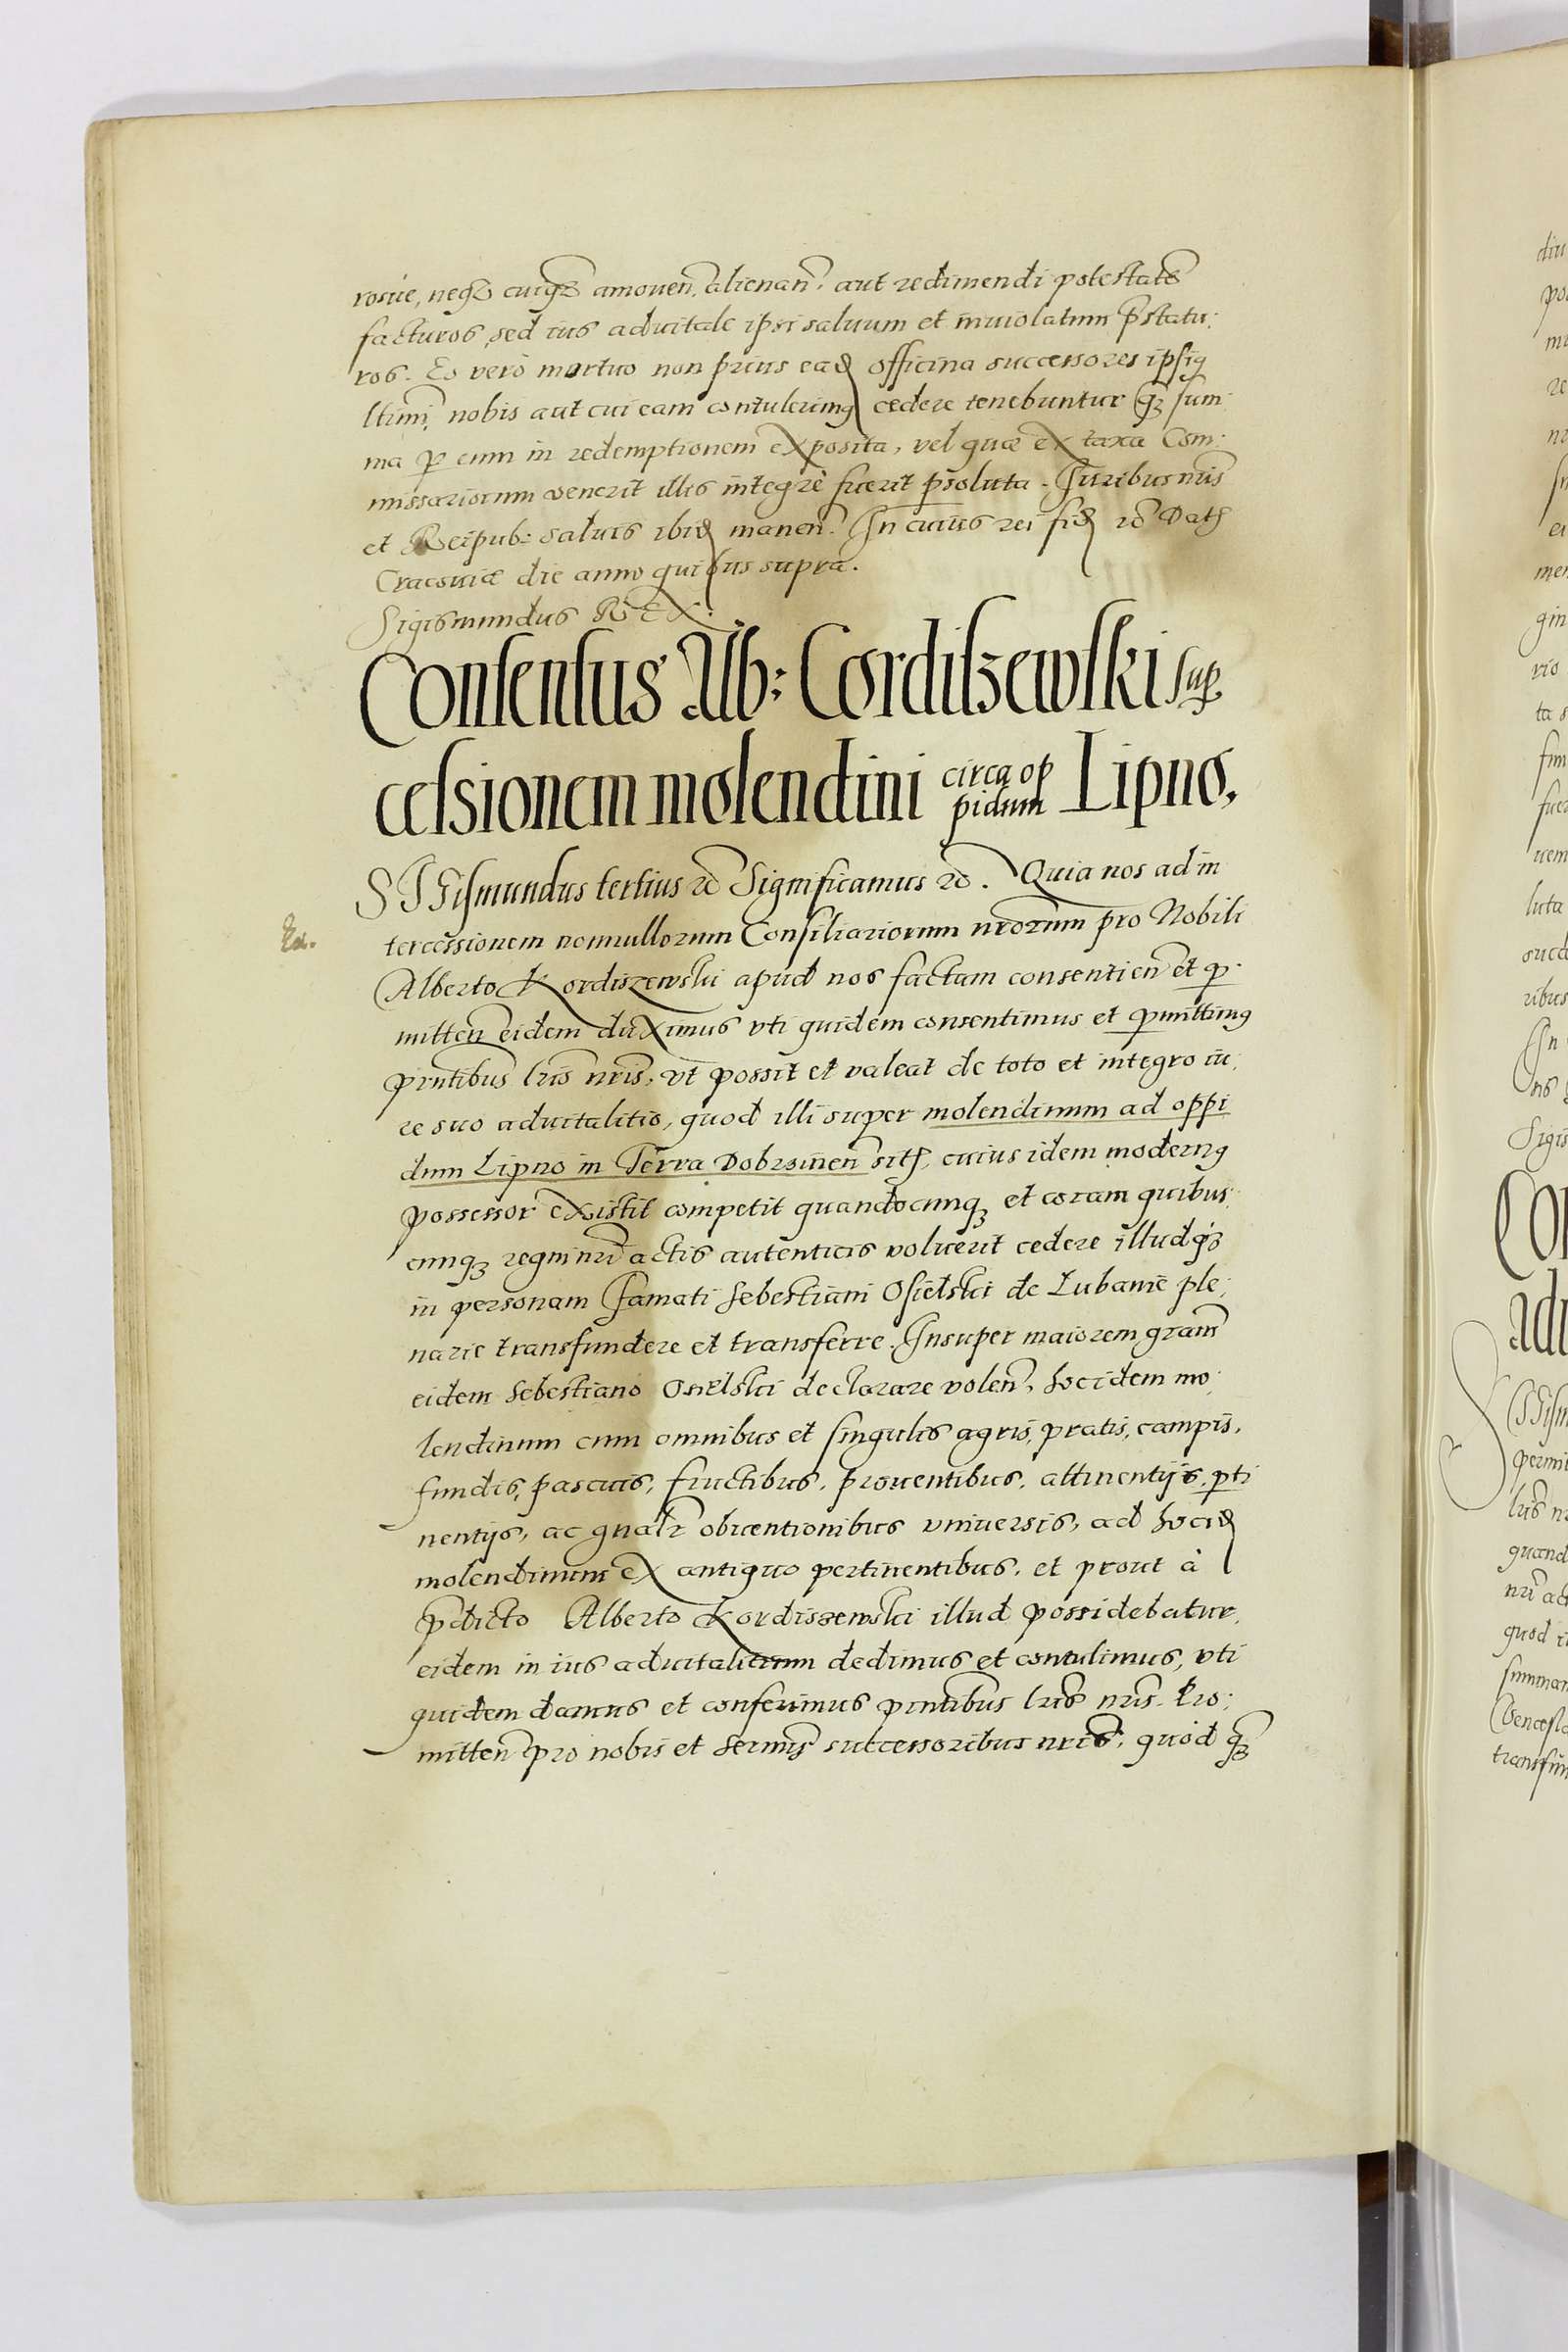 rosue, neq3 cuiq3 amouen. alienan. aut redimendi potestatē
facturos, sed ius aduitale ipsi saluum et inuiolatum p̄statu:
ros. Eo verò mortuo non prius ead officina successores ipsig
ltimi, nobis aut cui eam contulerimg cedere tenebuntur q3 sum
ma p eum in redemptionem exposita, vel quæ ex taxa Com:
missariorum venerit illis integrè fuerit p̄soluta. Iuribus nris
et Reipub: saluis ibid manen. In cuius rei fid zc Dat
Cracouiæ die anno quibus supra.
Sigismundus REX.
Consensus Alb: Cordiszewski sup
cessionem molendini circa op
pidum Lipno.
SIGismundus tertius zc Significamus zc. Quia nos ad in
tercessionem nonnullorum Consiliariorum nrorum pro Nobili
Alberto Kordiszewski apud nos factam consentien et p:
mitten eidem duximus vti quidem consentimus et pmittimg
pntibus lris nris, vt possit et valeat de toto et integro iu:
re suo aduitalitio, quod illi super molendinum ad oppi
dum Lipno in Terra Dobrinen sit, cuius idem moderng
possessor existit competit quandocunq3 et coram quibus:
cunq3 regni nri actis autenticis voluerit cedere illudq3
in personam Famati Sebestiani Osielski de Lubanie ple:
narie transfundere et transferre. Insuper maiorem gram
eidem Sebestiano Osielski declarare volen, hoc idem mo:
lendinum cum omnibus et singulis agris, pratis, campis,
fundis, pascuis, fructibus, prouentibus, attinentijs, pti
nentijs, ac gnalr obuentionibus vniuersis, ad hoc id
molendinum ex antiquo pertinentibus, et prout à
pdicto Alberto Kordiszewski illud possidebatur,
eidem in ius aduitalitium dedimus et contulimus, vti
quidem damus et conferimus pntibus lris nris. Pro:
mitten pro nobis et Sermis successoribus nris, quod q3